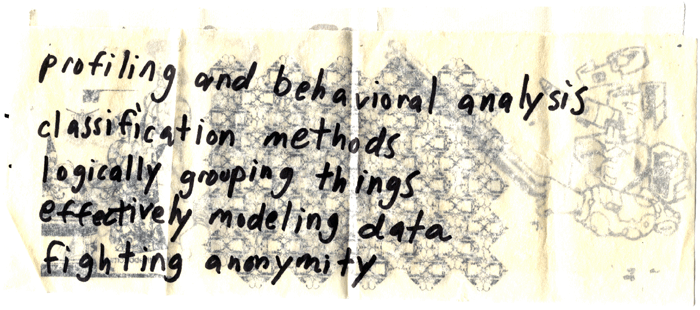 profiling and behavioral analysis
classification methods
logically grouping things
effectively modeling data
fighting anonymity